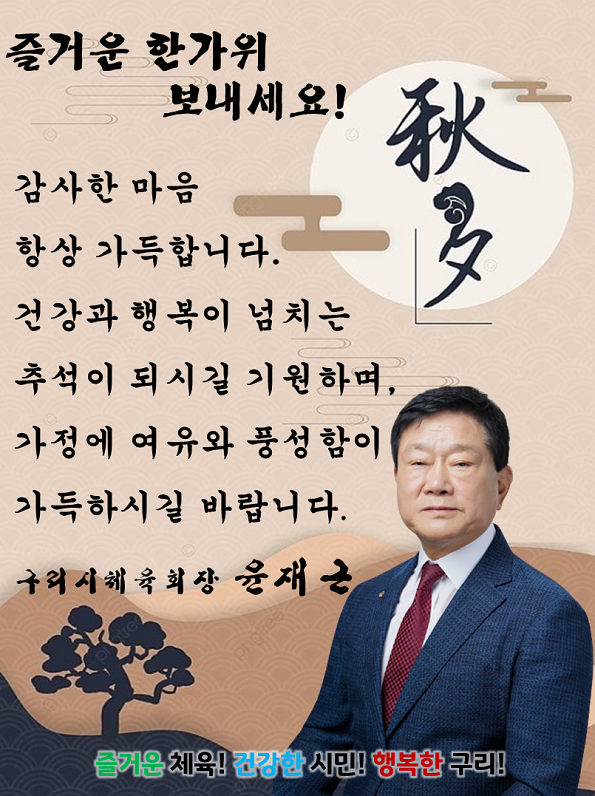 즐거운 한가위
보내세요!
秋夕
감사한 마음
항상 가득합니다.
건강과 행복이 넘치는
추석이 되시길 기원하며,
가정에 여유와 풍성함이
가득하시길 바랍니다.
구리시체육회장 윤재근
즐거운 체육! 건강한 시민! 행복한 구리!